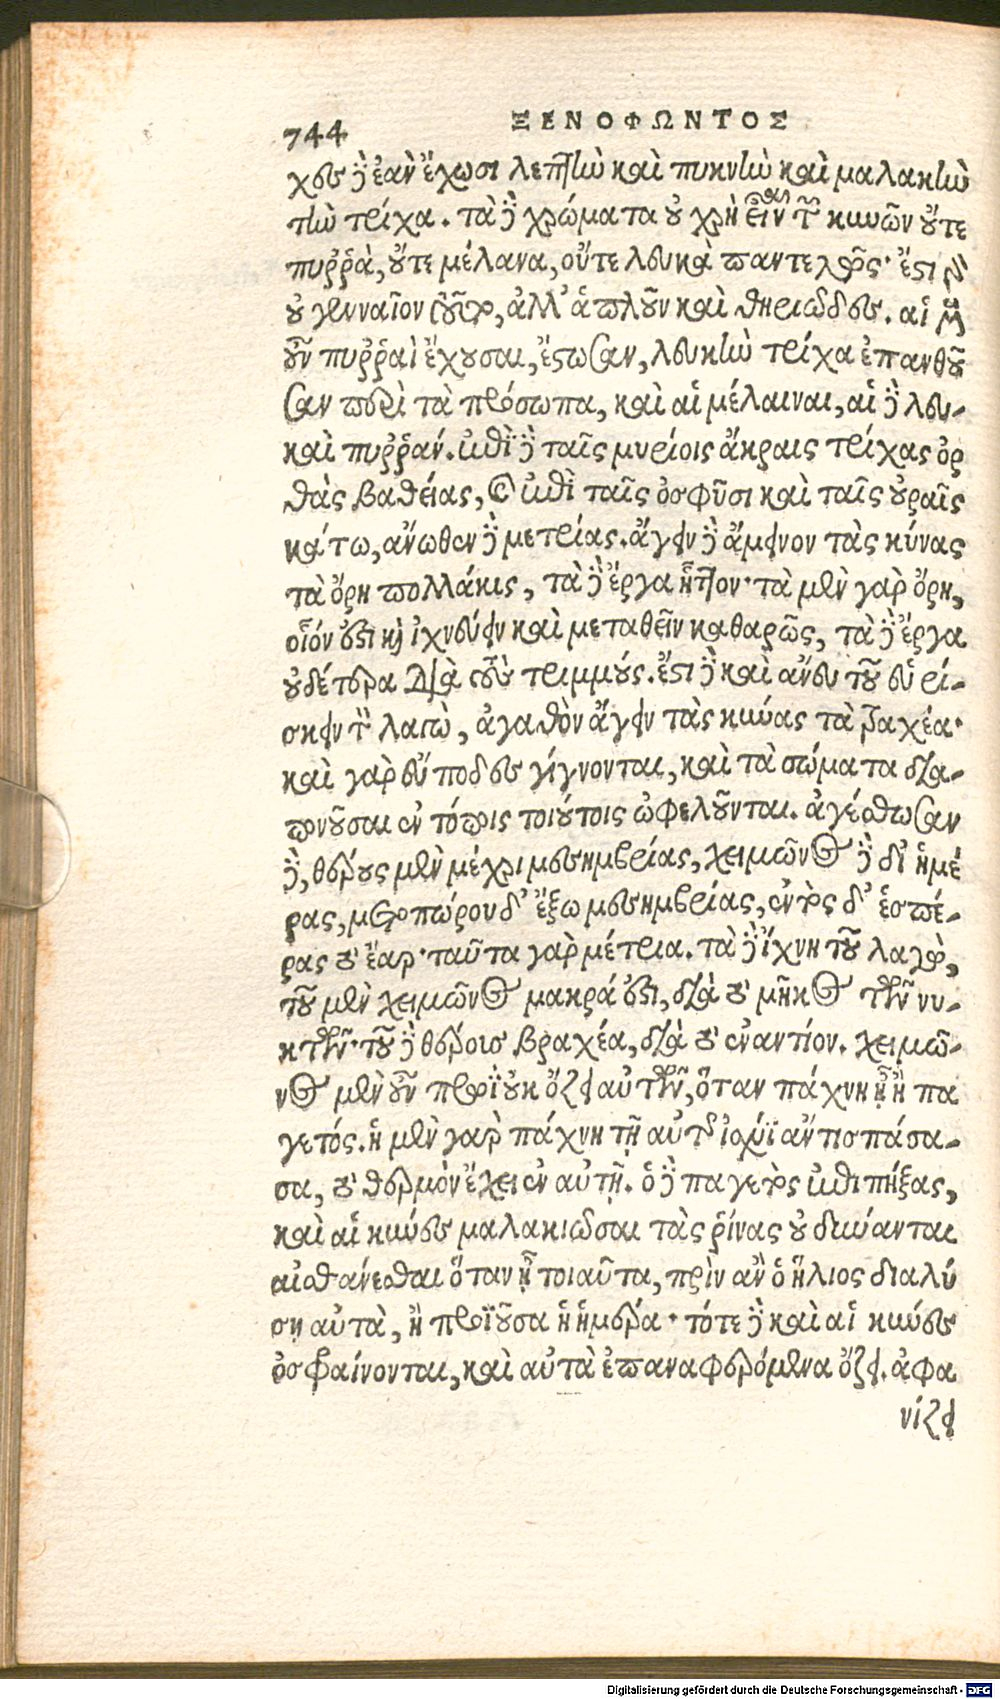 744 ΞΕΝΟΦΩΝΤΟΣ
χες δὲ ἐὰν ἔχωσι λεπτὴν καὶ πυκνὴν καὶ μαλακὴν
τὴν τρίχα. τὰ δὲ χρώματα οὐ χρὴ εἶναι τῶν κυνῶν οὔτε
πυῤῥὰ, οὔτε μέλανα, οὔτε λευκὰ παντελῶς· ἔστι γὰρ
οὐ γενναῖον τοῦτο, ἀλλ' ἁπλοῦν καὶ θηριῶδες. αἱ μὲν
οὖν πυῤῥαὶ ἔχουσαι, ἔστωσαν, λευκὴν τρίχα ἐπανθοῦ
σαν περὶ τὰ πρόσωπα, καὶ αἱ μέλαιναι, αἱ δὲ λευ-
καὶ πυῤῥάν. ἐπὶ δὲ ταῖς μυρίοις ἄκραις τρίχας ὀρ
θὰς βαθείας, καὶ ἐπὶ ταῖς ὀσφῦσι καὶ ταῖς οὐραῖς
κάτω, ἄνωθεν δὲ μετρίας. ἄγειν δὲ ἄμεινον τὰς κύνας
τὰ ὄρη πολλάκις, τὰ δὲ ἔργα ἧττον· τὰ μὲν γὰρ ὄρη,
οἷόν ἐστι καὶ ἰχνεύειν καὶ μεταθεῖν καθαρῶς, τὰ δὲ ἔργα
οὐδέτερα διὰ τοὺς τριμμούς. ἔστι δὲ καὶ ἄνευ τοῦ εὑρί-
σκειν τὸν λαγὼ, ἀγαθὸν ἄγειν τὰς κύνας τὰ τραχέα·
καὶ γὰρ εὔποδες γίγνονται, καὶ τὰ σώματα δια-
πονοῦσαι ἐν τόποις τοιούτοις ὠφελοῦνται. ἀγέσθωσαν
δὲ, θέρους μὲν μέχρι μεσημβρίας, χειμῶνος δὲ δι' ἡμέ
ρας, μετοπώρου δ' ἔξω μεσημβρίας, ἐντὸς δ' ἑσπέ-
ρας τὸ ἔαρ· ταῦτα γὰρ μέτρια. τὰ δὲ ἴχνη τοῦ λαγὼ,
τοῦ μὲν χειμῶνος μακρά ἐστι, διὰ τὸ μῆκος τῶν νυ-
κτῶν· τοῦ δὲ θέροις βραχέα, διὰ τὸ ἐναντίον. χειμῶ-
νος μὲν οὖν πρωῒ οὐκ ὄζει αὐτῶν, ὅταν πάχνη ᾖ ἢ πα
γετός. ἡ μὲν γὰρ πάχνη τῇ αὑτῆς ἰσχύϊ ἀντισπάσα-
σα, τὸ θερμὸν ἔχει ἐν αὑτῇ. ὁ δὲ παγετὸς ἐπιπήξας,
καὶ αἱ κύνες μαλακιῶσαι τὰς ῥίνας οὐ δύνανται
αἰσθάνεσθαι ὅταν ᾖ τοιαῦτα, πρὶν ἂν ὁ ἥλιος διαλύ
σῃ αὐτὰ, ἢ προϊοῦσα ἡ ἡμέρα· τότε δὲ καὶ αἱ κύνες
ὀσφραίνονται, καὶ αὐτὰ ἐπαναφερόμενα ὄζει. ἀφα
νίζει
Digitalisierung gefördert durch die Deutsche Forschungsgemeinschaft - DFG